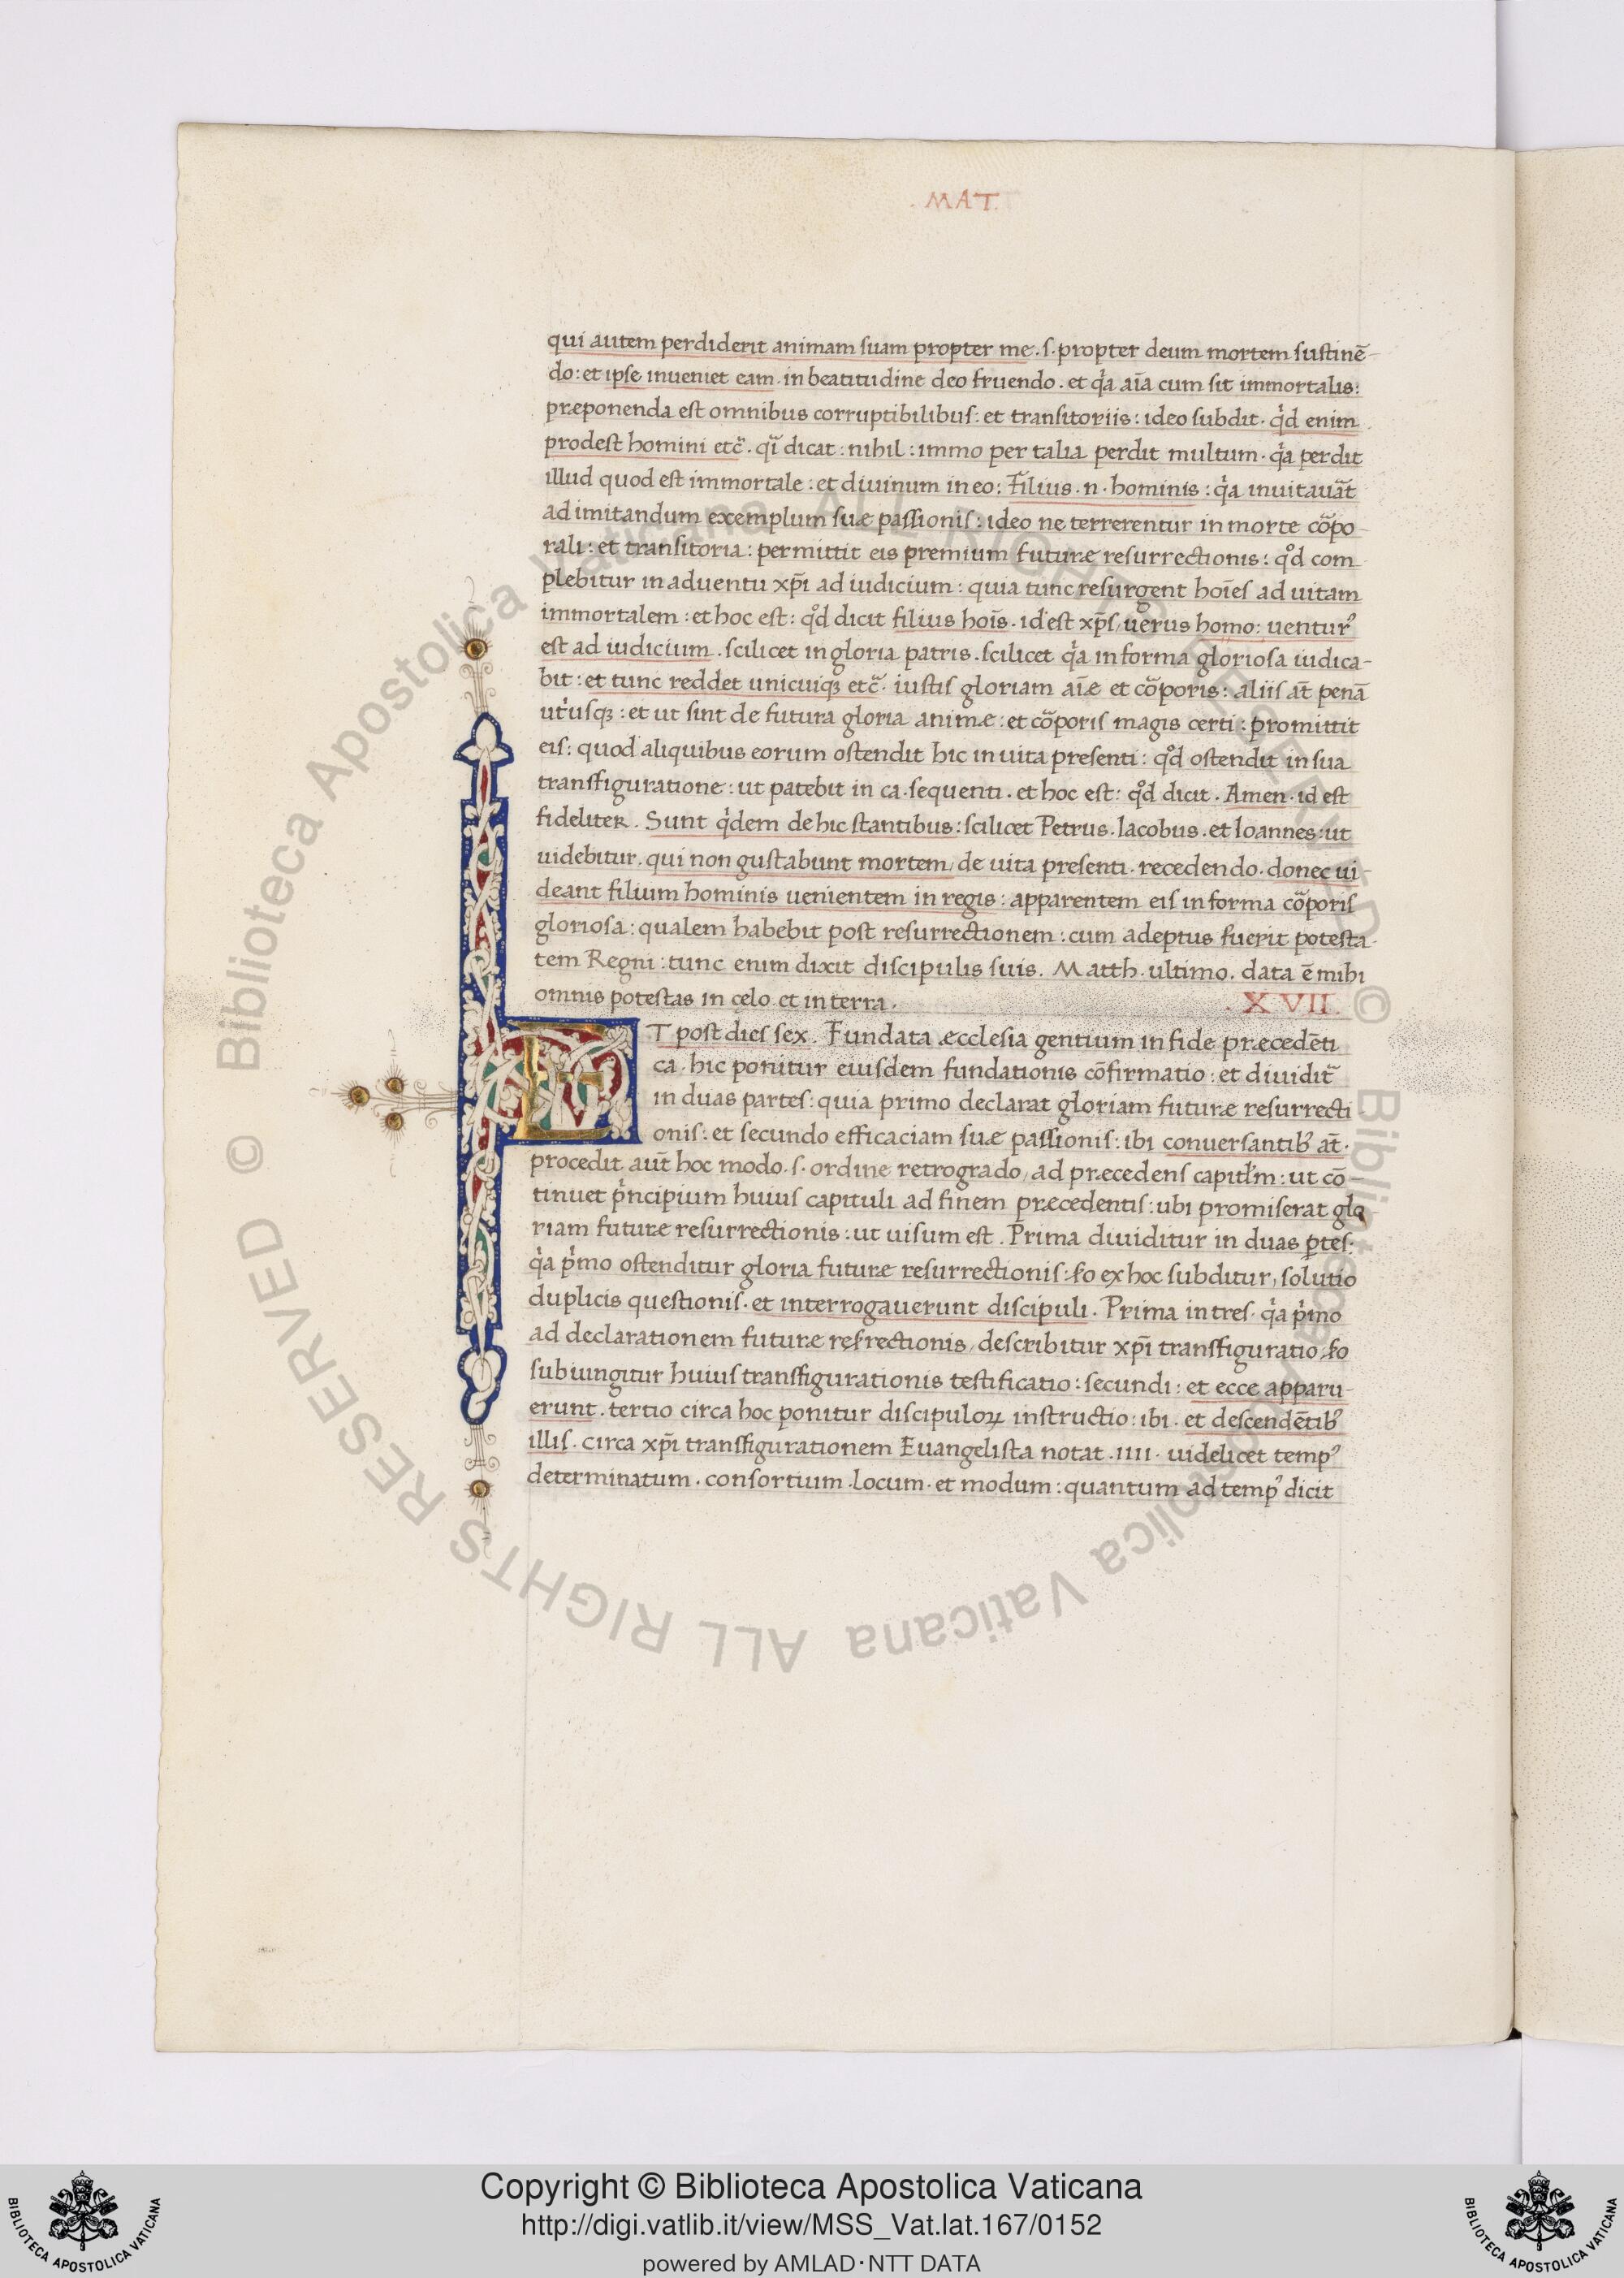 . MAT.
qui autem perdiderit animam suam propter me . s . propter deum mortem sustinē-
do : et ipse inueniet eam . in beatitudine deo fruendo . et qͥa aīa cum sit immortalis :
præponenda est omnibus corruptibilibus : et transitoriis : ideo subdit . qͥd enim
prodest homini etc̄ . qī dicat : nihil : immo per talia perdit multum . qͥa perdit
illud quod est immortale : et diuinum in eo : Filius . n . hominis : qͥa inuitauāt
ad imitandum exemplum suæ passionis : ideo ne terrerentur in morte cōpo-
rali : et transitoria : permittit eis premium futuræ resurrectionis : qͦd com
plebitur in aduentu xp̄i ad iudicium : quia tunc resurgent hoīes ad uitam
immortalem : et hoc est : qͦd dicit filius hoīs . id est xp̄s / uerus homo : uenturꝰ
est ad iudicium . scilicet in gloria patris . scilicet qͥa in forma gloriosa iudica-
bit : et tunc reddet unicuiqꝫ etc̄ . iustis gloriam aīæ et cōporis : aliis at̄ penā
utͥusqꝫ : et ut sint de futura gloria animæ : et cōporis magis certi : promittit
eis : quod aliquibus eorum ostendit hic in uita presenti : qͦd ostendit in sua
transfiguratione : ut patebit in ca . sequenti . et hoc est : qͦd dicit . Amen . id est
fideliter . Sunt qͥdem de hic stantibus : scilicet Petrus . Iacobus . et Ioannes : ut
uidebitur . qui non gustabunt mortem / de uita presenti . recedendo . donec ui-
deant filium hominis uenientem in regis : apparentem eis in forma cōporis
gloriosa : qualem habebit post resurrectionem : cum adeptus fuerit potesta-
tem Regni : tunc enim dixit discipulis suis . Matth . ultimo . data ē mihi
omnis potestas in cęlo et in terra .
. XVII .
ET post dies sex . Fundata ecclesia gentium in fide præcedēti
ca . hic ponitur eiusdem fundationis cōfirmatio : et diuidit̄
in duas partes : quia primo declarat gloriam futuræ resurrecti-
onis : et secundo efficaciam suæ passionis : ibi conuersantibꝰ at̄ .
procedit aut̄ hoc modo . s . ordine retrogrado / ad præcedens capitl̄m : ut cō-
tinuet pͥncipium huius capituli ad finem præcedentis : ubi promiserat glo
riam futuræ resurrectionis : ut uisum est . Prima diuiditur in duas ꝑtes :
qͥa pͥmo ostenditur gloria futuræ resurrectionis : ẜo ex hoc subditur / solutio
duplicis questionis . et interrogauerunt discipuli . Prima in tres . qͥa pͥmo
ad declarationem futuræ resrectionis / describitur xp̄i transfiguratio / ẜo
subiungitur huius transfigurationis testificatio : secundi : et ecce apparu-
erunt . tertio circa hoc ponitur discipuloꝝ instructio : ibi . et descendētibꝰ
illis . circa xp̄i transfigurationem Euangelista notat . IIII . uidelicet tempꝰ
determinatum . consortium . locum . et modum : quantum ad tempꝰ dicit
© Biblioteca Apostolica Vaticana ALL RIGHTS RESERVED © Biblioteca Apostolica Vaticana ALL RIGHTS RESERVED
Copyright © Biblioteca Apostolica Vaticana
http://digi.vatlib.it/view/MSS_Vat.lat.167/0152
powered by AMLAD·NTT DATA
BIBLIOTECA APOSTOLICA VATICANA
BIBLIOTECA APOSTOLICA VATICANA